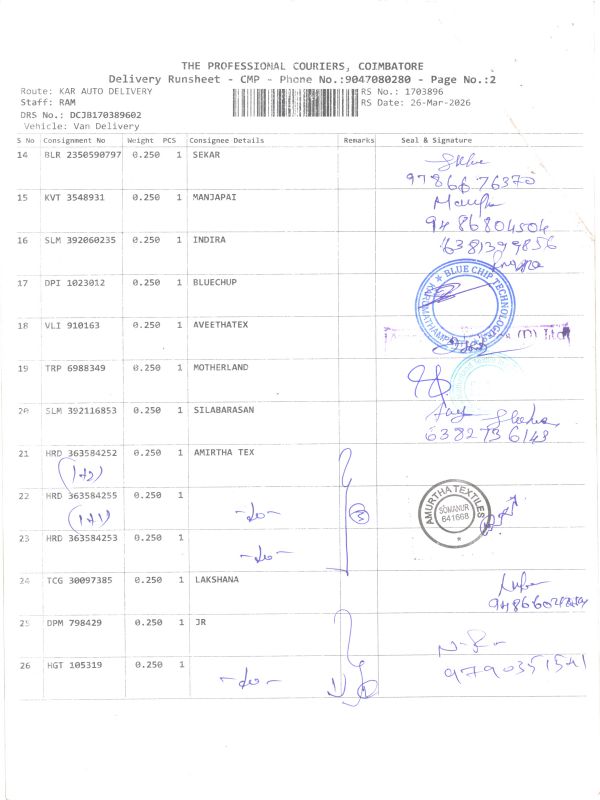 THE PROFESSIONAL COURIERS, COIMBATORE
Delivery Runsheet - CMP - Phone No.:9047080280 - Page No.:2
Route: KAR AUTO DELIVERY RS No.: 1703896
Staff: RAM RS Date: 26-Mar-2026
DRS No.: DCJB170389602
Vehicle: Van Delivery
S No Consignment No Weight PCS Consignee Details Remarks Seal & Signature
14 BLR 2350590797 0.250 1 SEKAR
9786676370
15 KVT 3548931 0.250 1 MANJAPAI
9486804504
16 SLM 392060235 0.250 1 INDIRA
6381399856
17 DPI 1023012 0.250 1 BLUECHUP
BLUE CHIP TECHNOLOGIES
18 VLI 910163 0.250 1 AVEETHATEX
(P) Ltd
19 TRP 6988349 0.250 1 MOTHERLAND
20 SLM 392116853 0.250 1 SILABARASAN
6382736143
21 HRD 363584252 0.250 1 AMIRTHA TEX
(1+2)
22 HRD 363584255 0.250 1 -do- 3
(1+1)
AMURTHA TEXTILES
SOMANUR
641668
23 HRD 363584253 0.250 1 -do-
24 TCG 30097385 0.250 1 LAKSHANA
25 DPM 798429 0.250 1 JR
9790351541
26 HGT 105319 0.250 1 -do-